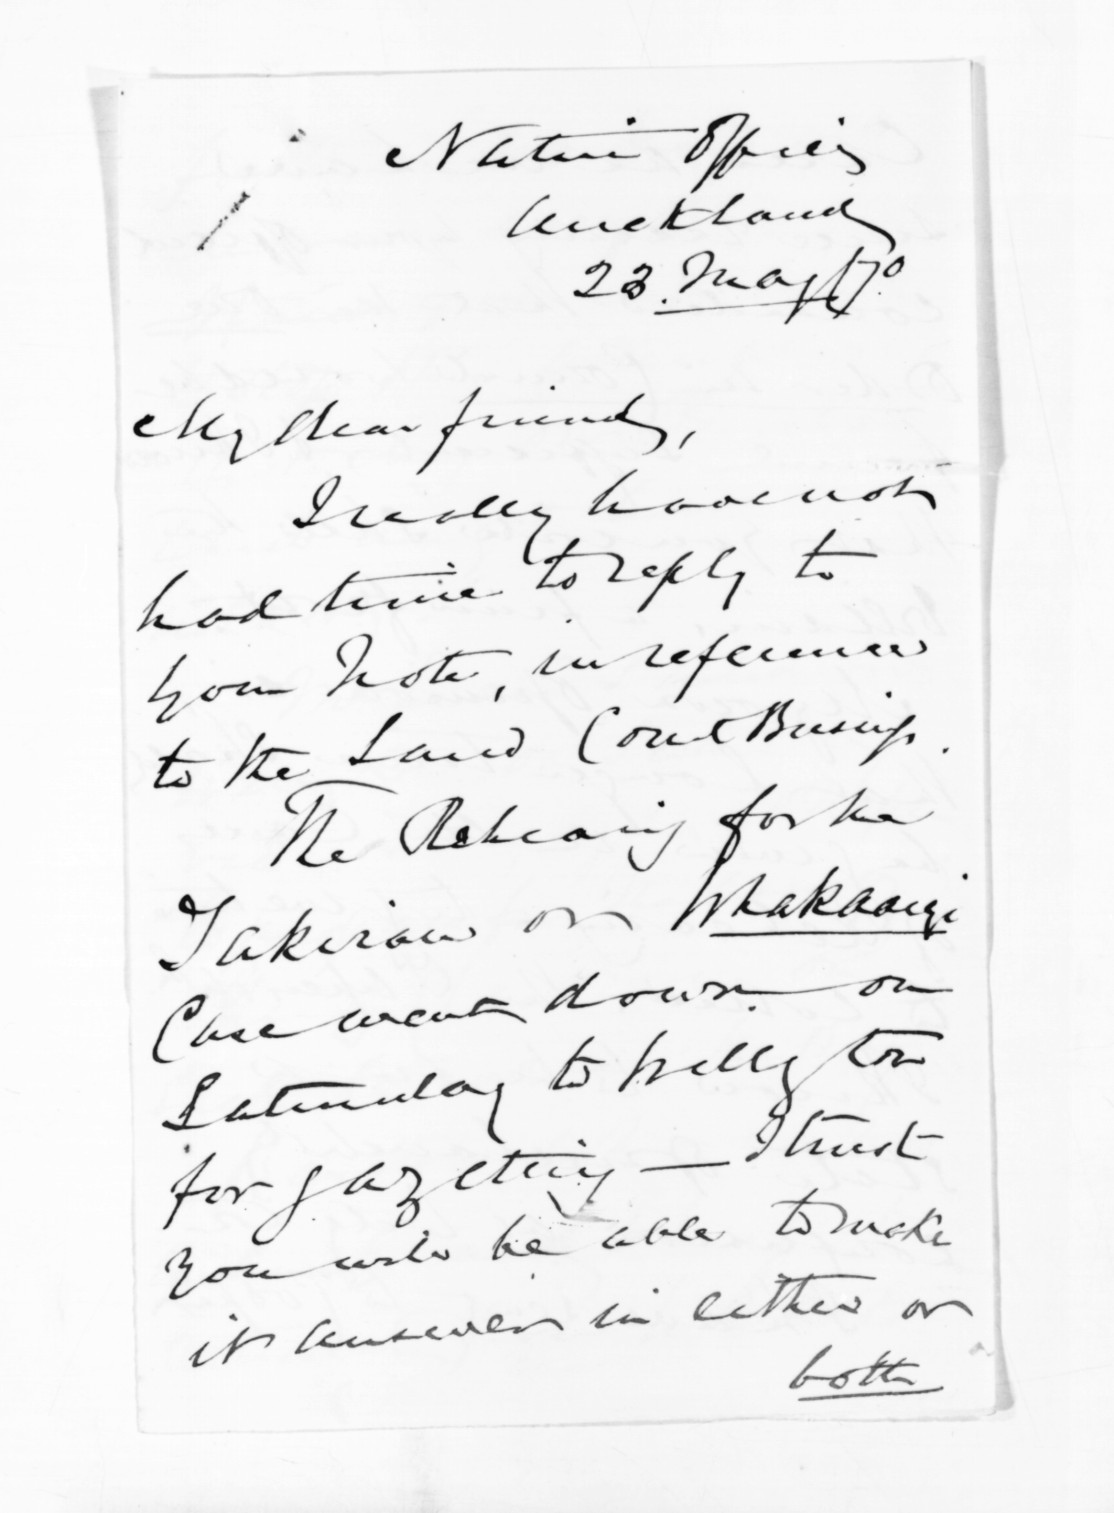 Native Office
Auckland
23. May /70
My dear friend,
I really have not
had time to reply to
your Note, in reference
to the Land Court Business.
The Rehearing for the
or
Case went down on
Saturday to Wellington
for gazetting — I trust
you will be able to make
it answer in either or
both